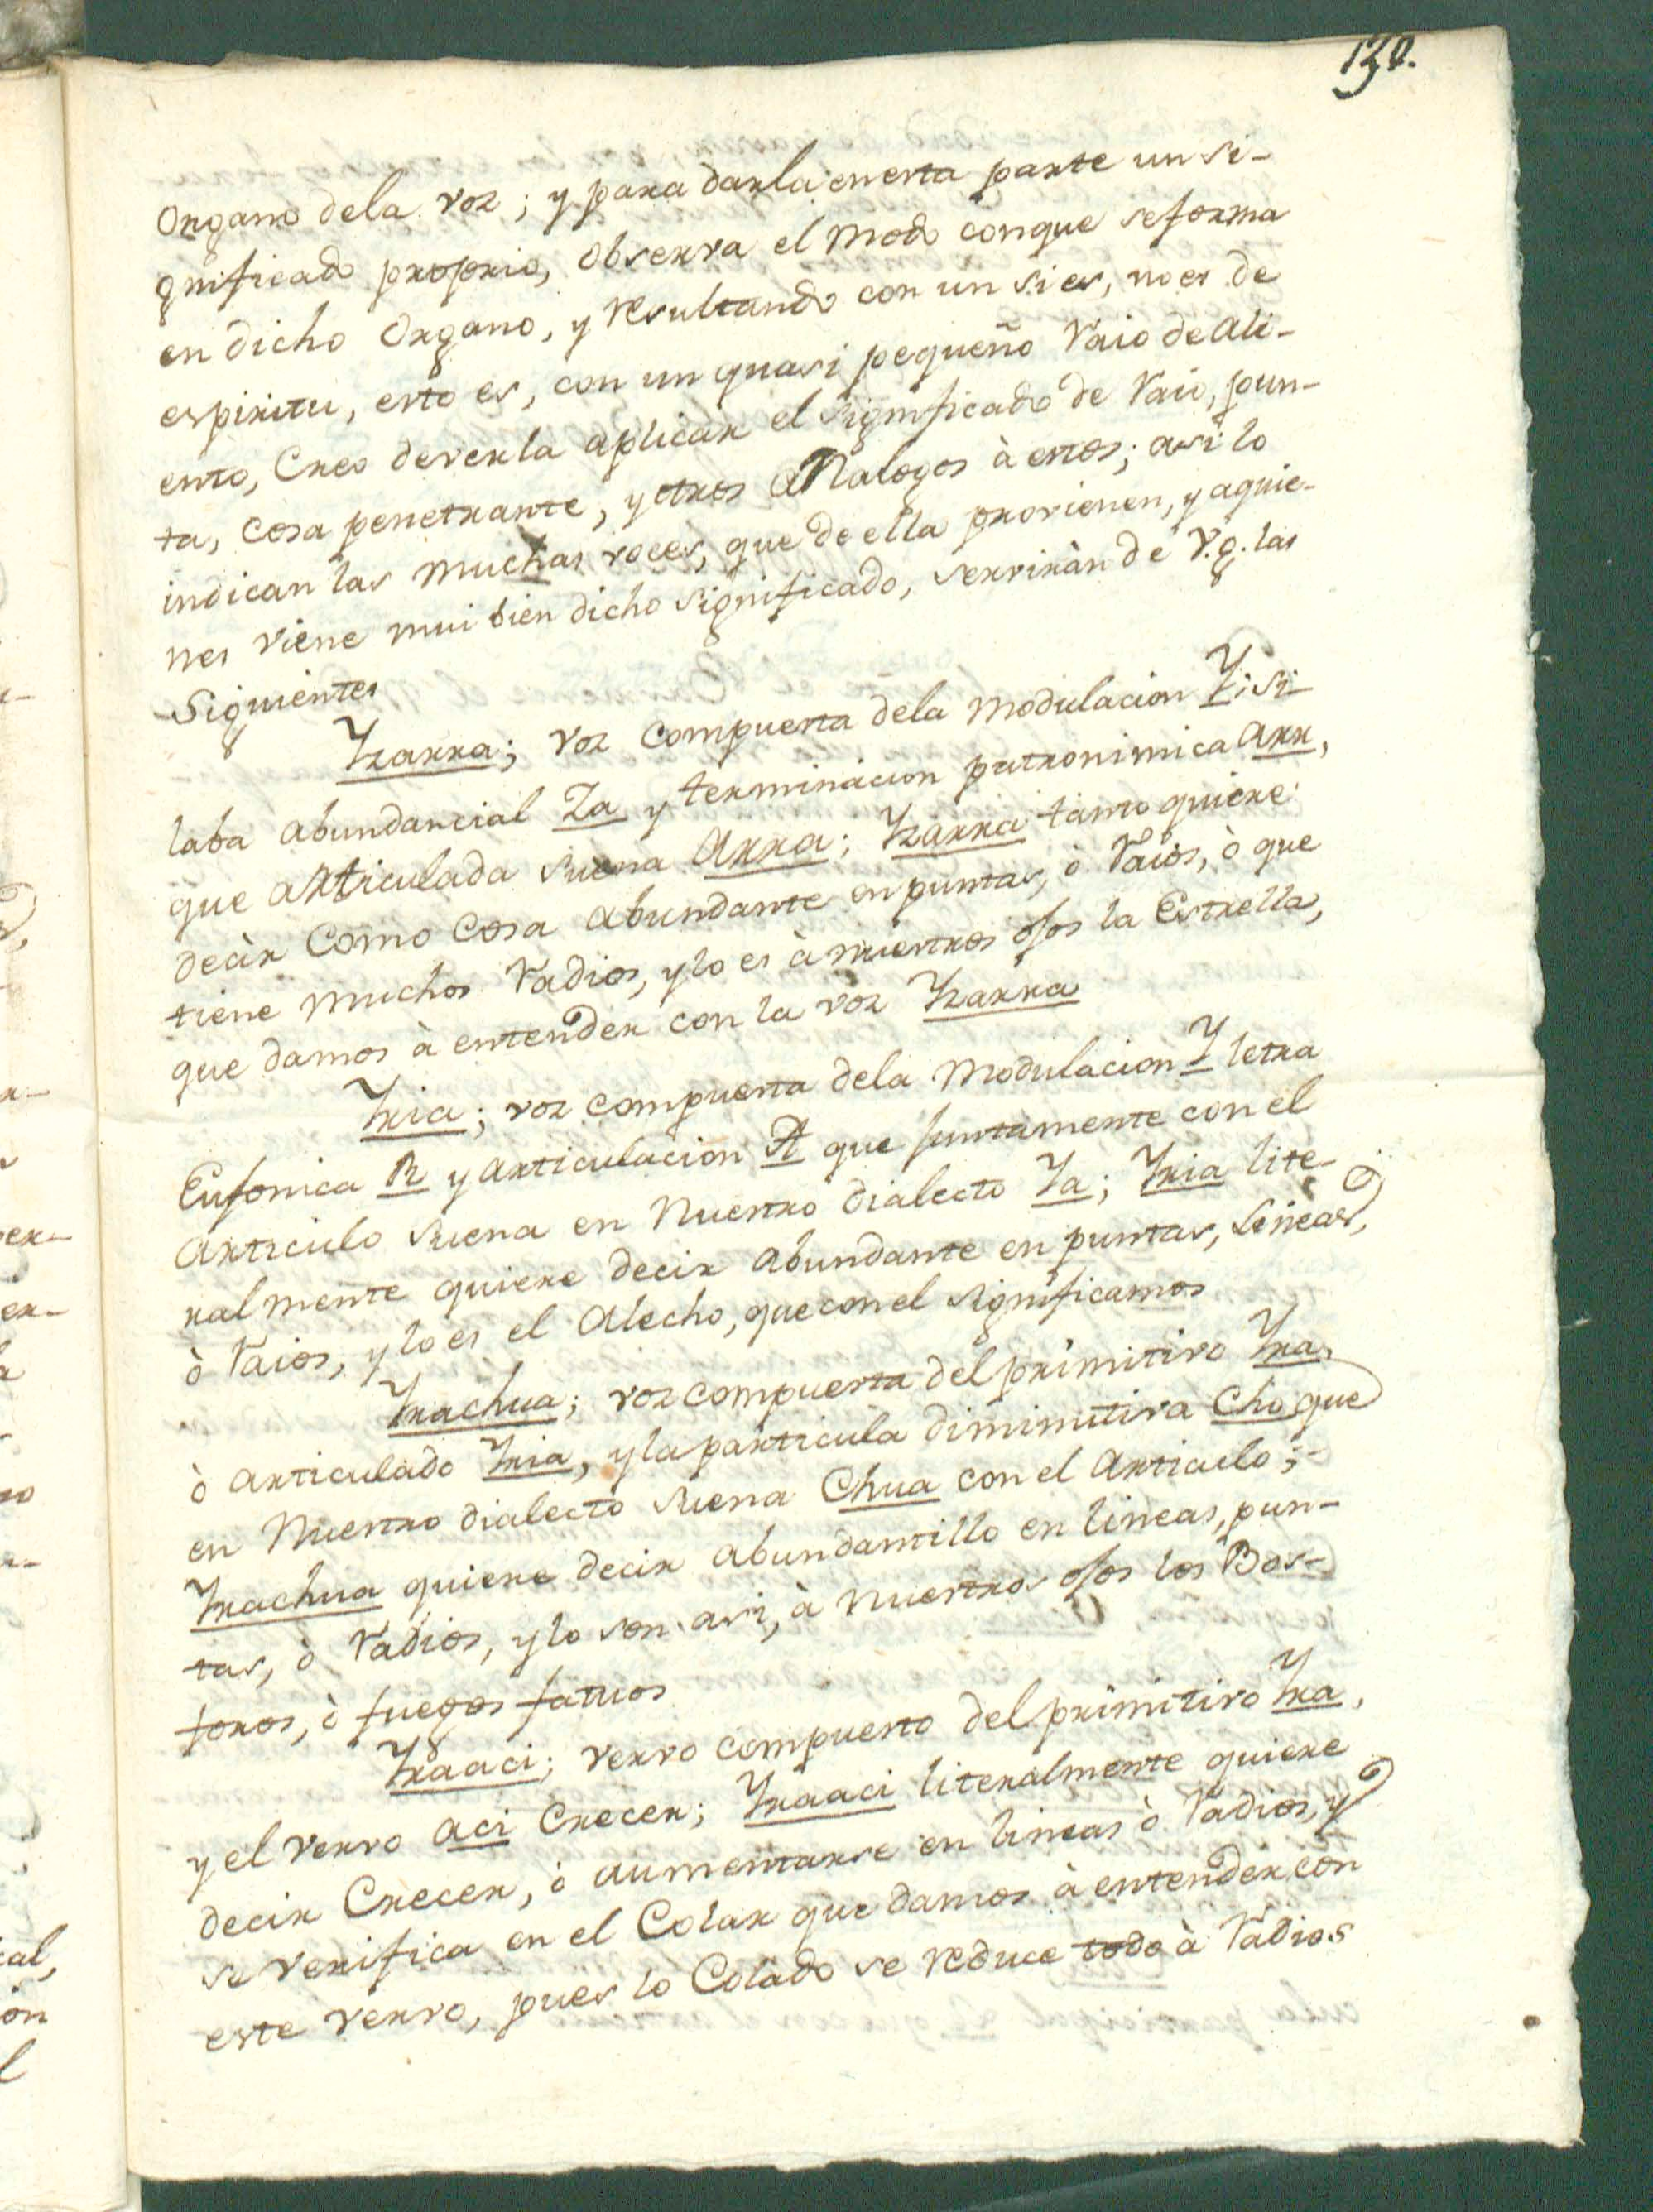 130.
Organo dela voz; y para darla en esta parte un si-
gnificado proprio, observa el modo conque seforma
en dicho Organo, y resultando con un si es, no es de
espiritu, esto es, con un quasi pequeño raio de ali-
ento, Creo deverla aplicar el significado de raio, pun-
ta, cosa penetrante, y otros analogos à estos; asi lo
indican las muchas voces, que de ella provienen, y aquie-
nes viene mui bien dicho significado, serviràn de V.g. las
Siguientes
Yzarra; voz compuesta dela modulacion Y; si-
laba abundancial Za y terminacion patronimica arr,
que articulada suena Arra; Yzarra tanto quiere
decir como cosa abundante en puntas, ò raios, ò que
tiene muchos radios, y lo es à nuestros ojos la Estrella,
que damos à entender con la voz Yzarra
Yria; voz compuesta dela modulacion Y letra
Eufonica R y articulacion A que juntamente con el
articulo suena en Nuestro dialecto Ya; Yria lite-
ralmente quiere decir abundante en puntas, lineas,
ò raios, y lo es el Alecho, que con el significamos
Yrachua; voz compuesta del primitivo Yra,
ò articulado Yria, y la particula diminutiva Cho que
en Nuestro dialecto suena Chua con el articulo;
Yrachua quiere decir abundantillo en lineas, pun-
tas, ò radios, y lo son asi, à nuestros ojos los Bos-
foros, ò fuegos fatuos
Yraaci; vervo compuesto del primitivo Yra,
y el vervo aci Crecer; Yraaci literalmente quiere
decir Crecer, ò aumentarse en lineas ò radios, y
se verifica en el Colar que damos à entender con
este vervo, pues lo Colado se reduce todo à radios